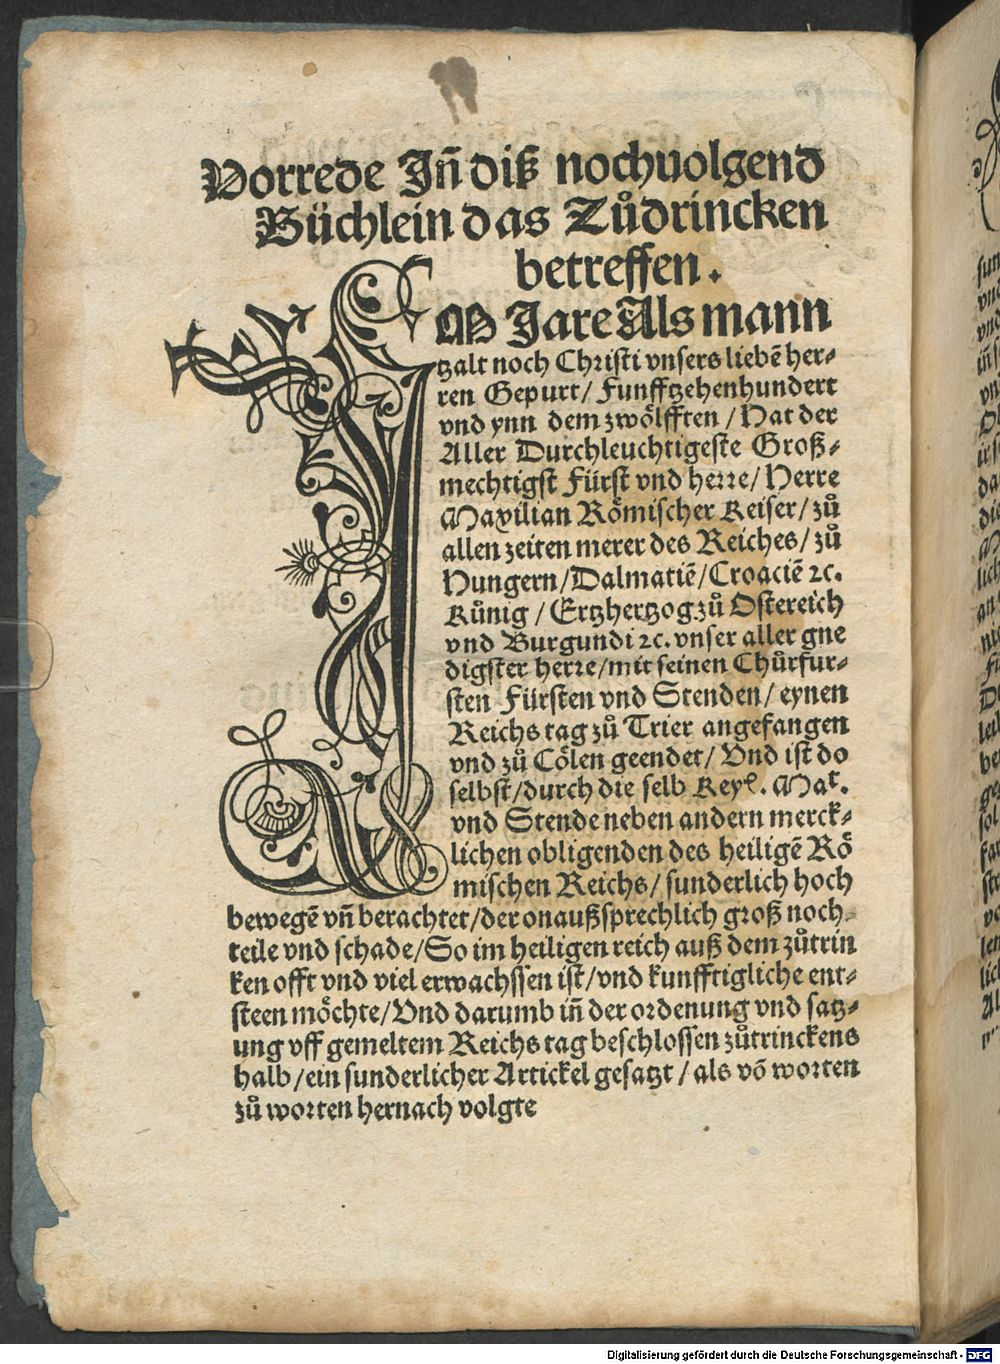 Vorrede Jn̄ diß nochuolgend
Büchlein das Zůdrincken
betreffen.
JM Jare Als mann
tzalt noch Christi vnsers liebē her⸗
ren Gepurt/ Funfftzehenhundert
vnd ynn dem zwölfften/ Hat der
Aller Durchleuchtigeste Groß⸗
mechtigst Fürst vnd herre/ Herre
Maxilian Römischer Keiser/ zů
allen zeiten merer des Reiches/ zů
Hungern/ Dalmatiē/ Croaciē ⁊c.
Kůnig/ Ertzhertzog zů Ostereich
vnd Burgundi ⁊c. vnser aller gne
digster herre/ mit seinen Chůrfur⸗
sten Fürsten vnd Stenden/ eynen
Reichs tag zů Trier angefangen
vnd zů Cölen geendet/ Vnd ist do
selbst/ durch die selb Keyͤ. Maᵗ.
vnd Stende neben andern merck⸗
lichen obligenden des heiligē Rö
mischen Reichs/ sunderlich hoch
bewegē vn̄ berachtet/ der onaußsprechlich groß noch
teile vnd schade/ So im heiligen reich auß dem zůtrin
ken offt vnd viel erwachssen ist/ vnd kunfftigliche ent⸗
steen möchte/ Vnd darumb in̄ der ordenung vnd satz⸗
ung vff gemeltem Reichs tag beschlossen zůtrinckens
halb/ ein sunderlicher Artickel gesatzt/ als vō worten
zů worten hernach volgte
Digitalisierung gefördert durch die Deutsche Forschungsgemeinschaft - DFG